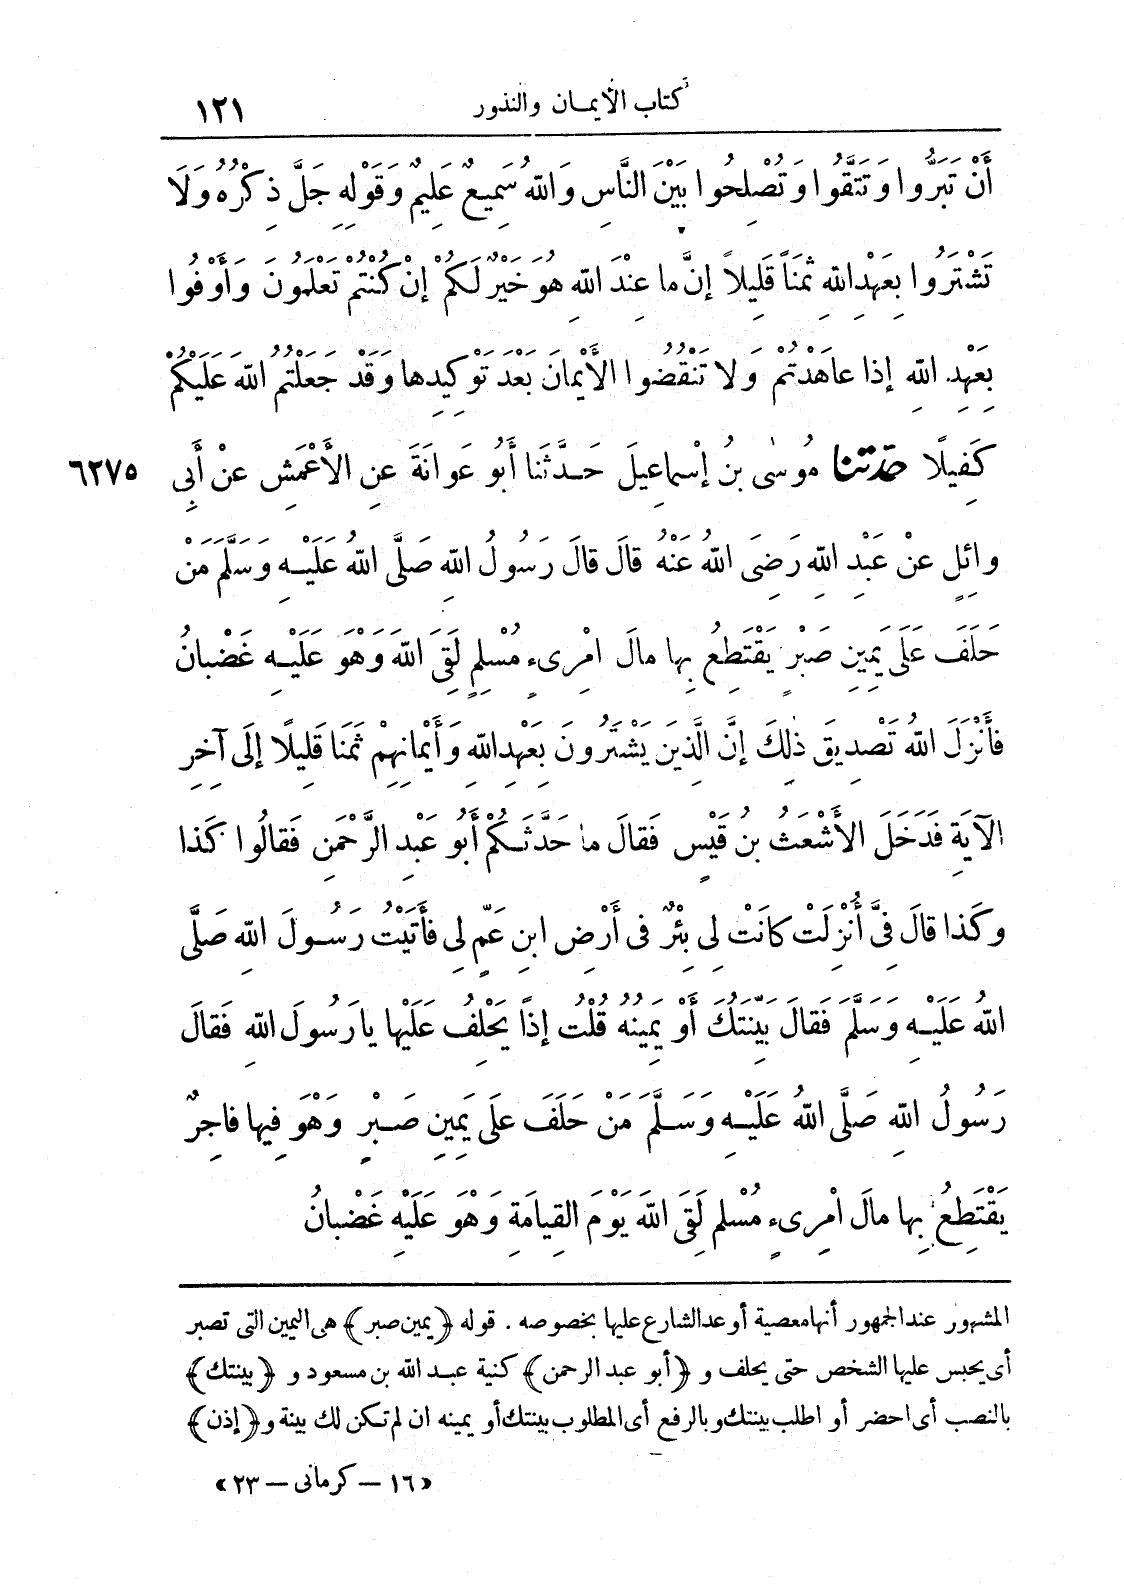 كتاب الأيمان والنذور ١٢١
أَنْ تَبَرُّوا وَتَتَّقُوا وَتُصْلِحُوا بَيْنَ النَّاسِ وَاللهُ سَمِيعٌ عَلِيمٌ وَقَوْلِهِ جَلَّ ذِكْرُهُ وَلَا
تَشْتَرُوا بِعَهْدِ اللهِ ثَمَنًا قَلِيلاً إِنَّ ما عِنْدَ اللهِ هُوَ خَيْرٌ لَكُمْ إِنْ كُنْتُمْ تَعْلَمُونَ وَأَوْفُوا
بِعَهْدِ اللهِ إِذا عاهَدْتُمْ وَلا تَنْقُضُوا الأَيْمَانَ بَعْدَ تَوْكِيدِها وَقَدْ جَعَلْتُمُ اللهَ عَلَيْكُمْ
كَفِيلًا حدثنا مُوسٰى بنُ إِسْماعِيلَ حَدَّثَنا أَبُو عَوانَةَ عنِ الأَعْمَشِ عنْ أَبِي ٦٢٧٥
وائِلٍ عنْ عَبْدِ اللهِ رَضِىَ اللهُ عَنْهُ قالَ قالَ رَسُولُ اللهِ صَلَّى اللهُ عَلَيْهِ وَسَلَّمَ مَنْ
حَلَفَ عَلَى يَمِينِ صَبْرٍ يَقْتَطِعُ بِها مالَ امْرِىءٍ مُسْلِمٍ لَقِىَ اللهَ وَهْوَ عَلَيْهِ غَضْبانُ
فأَنْزَلَ اللهُ تَصْدِيقَ ذٰلِكَ إِنَّ الَّذِينَ يَشْتَرُونَ بِعَهْدِ اللهِ وَأَيْمانِهِمْ ثَمَنًا قَلِيلًا إِلَى آخِرِ
الآيَةِ فَدَخَلَ الأَشْعَثُ بنُ قَيْسٍ فَقالَ ما حَدَّثَكُمْ أَبُو عَبْدِ الرَّحْمَنِ فَقالُوا كَذا
وكَذا قالَ فِىَّ أُنْزِلَتْ كانَتْ لِي بِئْرٌ فى أَرْضِ ابنِ عَمٍّ لِي فأَتَيْتُ رَسُولَ اللهِ صَلَّى
اللهُ عَلَيْهِ وَسَلَّمَ فَقالَ بَيِّنَتُكَ أَوْ يَمِينُهُ قُلْتُ إِذًا يَحْلِفُ عَلَيْها يا رَسُولَ اللهِ فَقالَ
رَسُولُ اللهِ صَلَّى اللهُ عَلَيْهِ وَسَلَّمَ مَنْ حَلَفَ عَلَى يَمِينِ صَبْرٍ وَهْوَ فِيها فاجِرٌ
يَقْتَطِعُ بِها مالَ امْرِىءٍ مُسْلِمٍ لَقِىَ اللهَ يَوْمَ القِيامَةِ وَهْوَ عَلَيْهِ غَضْبانُ
المشهور عند الجمهور أنها معصية أوعد الشارع عليها بخصوصه . قوله ﴿يمين صبر﴾ هى اليمين التى تصبر
أى يحبس عليها الشخص حتى يحلف و ﴿أبو عبد الرحمن﴾ كنية عبد الله بن مسعود و ﴿بينتك﴾
بالنصب أى احضر أو اطلب بينتك وبالرفع أى المطلوب بينتك أو يمينه ان لم تكن لك بينة و ﴿إذن﴾
«١٦ – كرمانى – ٢٣»